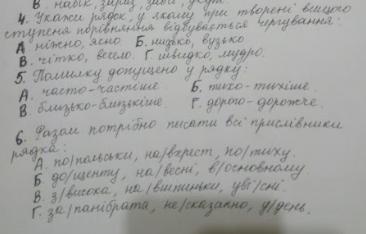 4. Укажи рядок, у якому при творені вищого
ступеня порівняння відбувається чергування:
А ніжно, ясно Б. низько, вузько
В. чітко, весело. Г. швидко, мудро.
5. Помилку допущено у рядку:
А. часто-частіше Б. тихо-тихіше.
В. близько-близькіше. Г. дорого-дорожче.
6. Разом потрібно писати всі прислівники
рядка:
А. по/польськи, на/вхрест, по/тиху.
Б. до/щенту, на/весні, в/основному.
В. з/висока, на/вшпиньки, уві/сні.
Г. за/панібрата, не/сказанно, у/день.